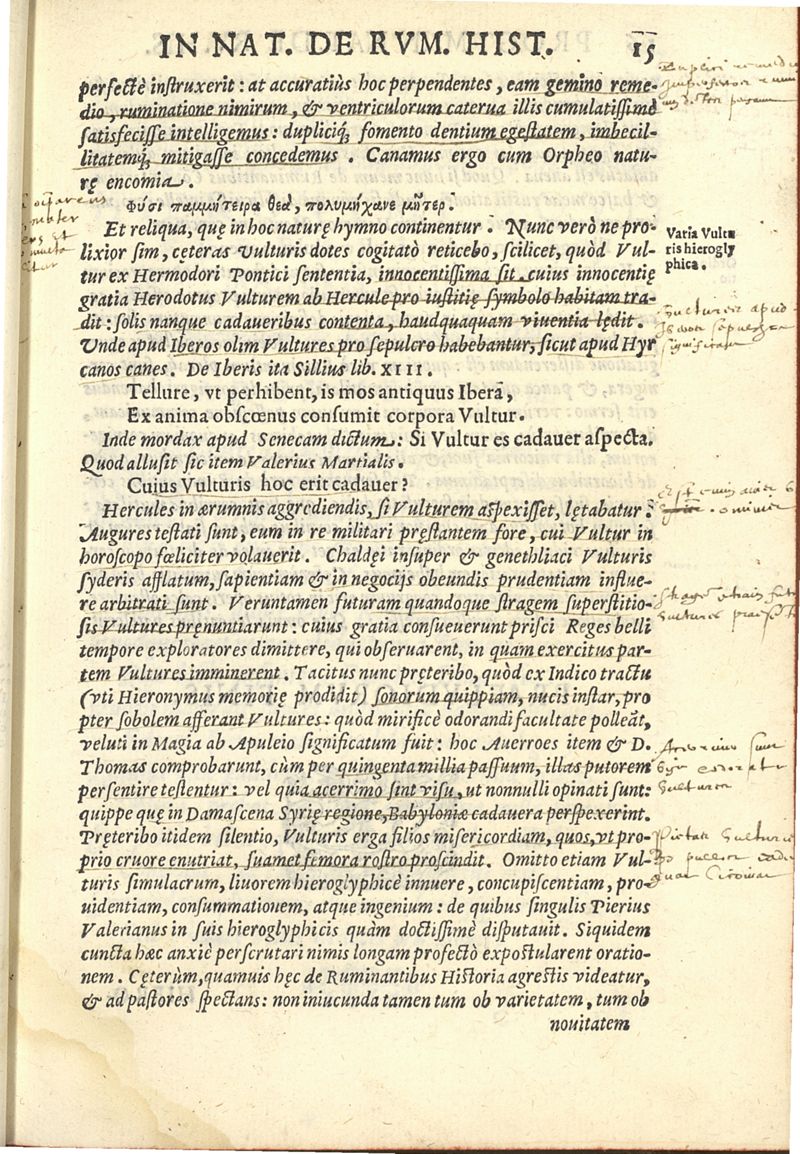 IN NAT. DE RVM. HIST. 15
perfectè instruxerit : at accuratiùs hoc perpendentes , eam gemino reme-
dio , ruminatione nimirum , & ventriculorum caterua illis cumulatissimè
satisfecisse intelligemus : dupliciq́; fomento dentium egestatem , imbecil-
litatemq́; mitigasse concedemus . Canamus ergo cum Orpheo natu-
rę encomia .
Φύσι παμμήτειρα θεὰ, πολυμήχανε μῆτερ.
Et reliqua, quę in hoc naturę hymno continentur . Nunc verò ne pro-
lixior sim, cęteras Vulturis dotes cogitatò reticebo, scilicet, quòd Vul-
tur ex Hermodori Pontici sententia, innocentissima sit . cuius innocentię
gratia Herodotus Vulturem ab Hercule pro iustitię symbolo habitam tra-
dit : solis nanque cadaueribus contenta, haudquaquam viuentia lędit .
Unde apud Iberos olim Vultures pro sepulcro habebantur, sicut apud Hyr
canos canes . De Iberis ita Sillius lib. XIII .
Tellure, vt perhibent, is mos antiquus Ibera,
Ex anima obscœnus consumit corpora Vultur.
Inde mordax apud Senecam dictum : Si Vultur es cadauer aspecta.
Quod allusit sic item Valerius Martialis .
Cuius Vulturis hoc erit cadauer?
Hercules in ærumnis aggrediendis, si Vulturem aspexisset, lętabatur :
Augures testati sunt, eum in re militari pręstantem fore, cui Vultur in
horoscopo fœliciter volauerit . Chaldęi insuper & genethliaci Vulturis
syderis afflatum, sapientiam & in negocijs obeundis prudentiam influe-
re arbitrati sunt . Veruntamen futuram quandoque stragem superstitio-
sis Vultures pręnuntiarunt : cuius gratia consueuerunt prisci Reges belli
tempore exploratores dimittere, qui obseruarent, in quam exercitus par-
tem Vultures imminerent . Tacitus nunc pręteribo, quòd ex Indico tractu
(vti Hieronymus memorię prodidit) sonorum quippiam, nucis instar, pro
pter sobolem afferant Vultures : quòd mirificè odorandi facultate polleāt,
veluti in Magia ab Apuleio significatum fuit : hoc Auerroes item & D.
Thomas comprobarunt, cùm per quingenta millia passuum, illas putorem
persentire testentur : vel quia acerrimo sint visu, ut nonnulli opinati sunt :
quippe quę in Damascena Syrię regione, Babyloniæ cadauera perspexerint.
Pręteribo itidem silentio, Vulturis erga filios misericordiam, quos, vt pro-
prio cruore enutriat, suamet femora rostro proscindit . Omitto etiam Vul-
turis simulacrum, liuorem hieroglyphicè innuere, concupiscentiam, pro-
uidentiam, consummationem, atque ingenium : de quibus singulis Pierius
Valerianus in suis hieroglyphicis quàm doctissimè disputauit . Siquidem
cuncta hæc anxiè perscrutari nimis longam profectò expostularent oratio-
nem . Cęterùm, quamuis hęc de Ruminantibus Historia agrestis videatur,
& ad pastores spectans : non iniucunda tamen tum ob varietatem, tum ob
nouitatem
Varia Vultu
ris hierogly
phica .